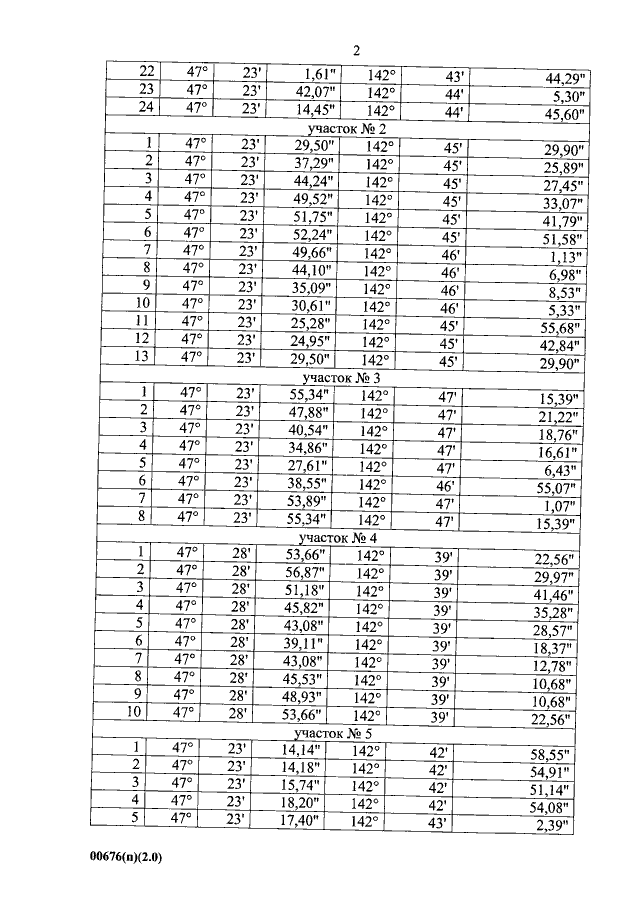 2
22 47° 23' 1,61" 142° 43' 44,29"
23 47° 23' 42,07" 142° 44' 5,30"
24 47° 23' 14,45" 142° 44' 45,60"
участок № 2
1 47° 23' 29,50" 142° 45' 29,90"
2 47° 23' 37,29" 142° 45' 25,89"
3 47° 23' 44,24" 142° 45' 27,45"
4 47° 23' 49,52" 142° 45' 33,07"
5 47° 23' 51,75" 142° 45' 41,79"
6 47° 23' 52,24" 142° 45' 51,58"
7 47° 23' 49,66" 142° 46' 1,13"
8 47° 23' 44,10" 142° 46' 6,98"
9 47° 23' 35,09" 142° 46' 8,53"
10 47° 23' 30,61" 142° 46' 5,33"
11 47° 23' 25,28" 142° 45' 55,68"
12 47° 23' 24,95" 142° 45' 42,84"
13 47° 23' 29,50" 142° 45' 29,90"
участок № 3
1 47° 23' 55,34" 142° 47' 15,39"
2 47° 23' 47,88" 142° 47' 21,22"
3 47° 23' 40,54" 142° 47' 18,76"
4 47° 23' 34,86" 142° 47' 16,61"
5 47° 23' 27,61" 142° 47' 6,43"
6 47° 23' 38,55" 142° 46' 55,07"
7 47° 23' 53,89" 142° 47' 1,07"
8 47° 23' 55,34" 142° 47' 15,39"
участок № 4
1 47° 28' 53,66" 142° 39' 22,56"
2 47° 28' 56,87" 142° 39' 29,97"
3 47° 28' 51,18" 142° 39' 41,46"
4 47° 28' 45,82" 142° 39' 35,28"
5 47° 28' 43,08" 142° 39' 28,57"
6 47° 28' 39,11" 142° 39' 18,37"
7 47° 28' 43,08" 142° 39' 12,78"
8 47° 28' 45,53" 142° 39' 10,68"
9 47° 28' 48,93" 142° 39' 10,68"
10 47° 28' 53,66" 142° 39' 22,56"
участок № 5
1 47° 23' 14,14" 142° 42' 58,55"
2 47° 23' 14,18" 142° 42' 54,91"
3 47° 23' 15,74" 142° 42' 51,14"
4 47° 23' 18,20" 142° 42' 54,08"
5 47° 23' 17,40" 142° 43' 2,39"
00676(п)(2.0)